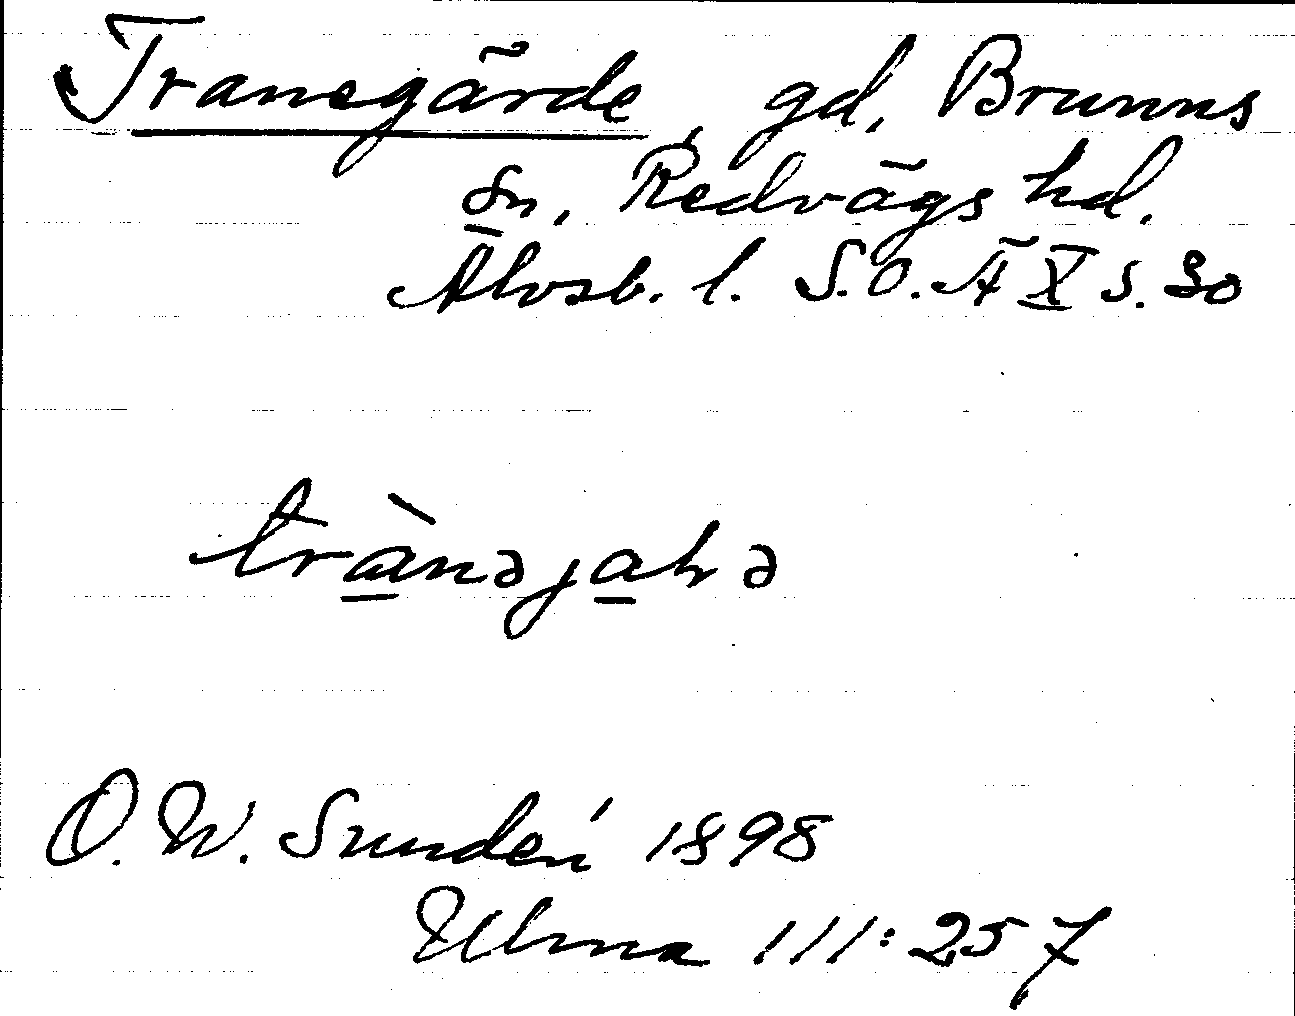 Tranegärde, gd, Brunns
sn, Redvägs hd.
Älvsb. l. S.O.Ä X s. 30
trànəjahə
O. W. Sundén 1898
Ulma 111:257